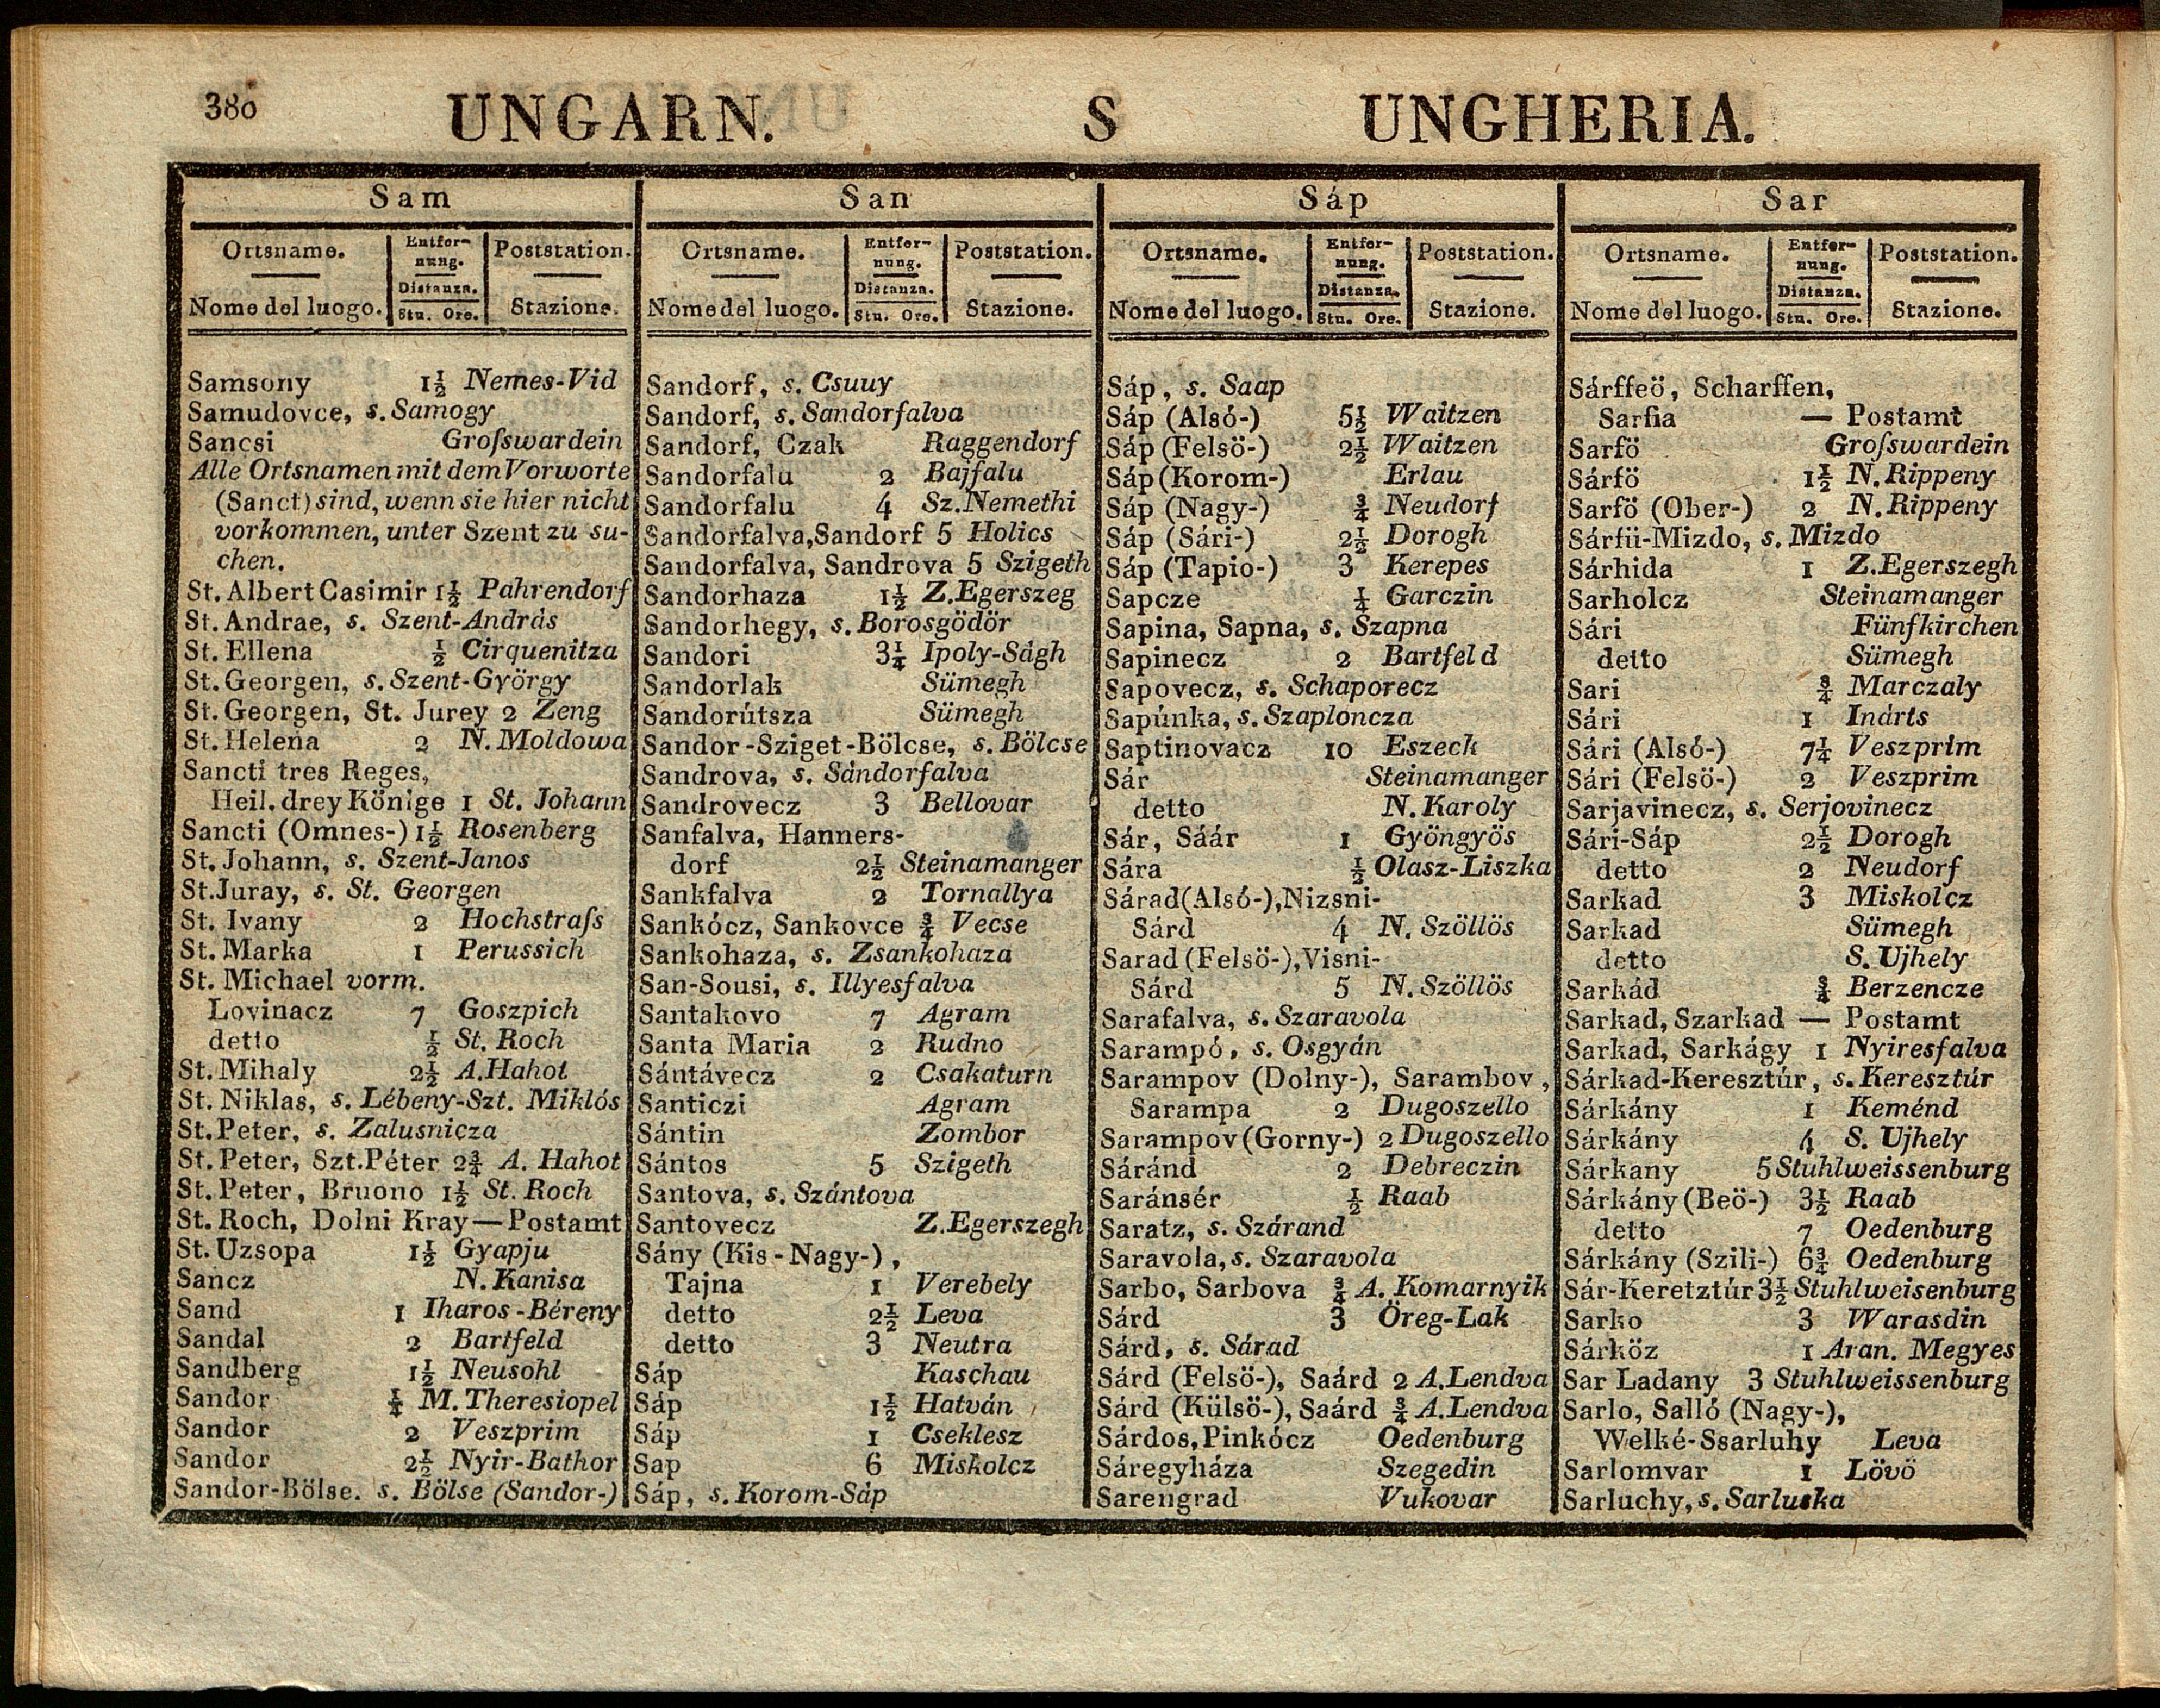 380 UNGARN. S UNGHERIA.
Sam
Ortsname. Entfernung. Poststation.
Nome del luogo. Distanza. Stu. Ore. Stazione.
Samsony 1½ Nemes-Vid
Samudovce, s. Samogy
Sancsi Groſswardein
Alle Ortsnamen mit dem Vorworte
(Sanct) sind, wenn sie hier nicht
vorkommen, unter Szent zu su-
chen.
St. Albert Casimir 1½ Pahrendorf
St. Andrae, s. Szent-András
St. Ellena ½ Cirquenitza
St. Georgen, s. Szent-György
St. Georgen, St. Jurey 2 Zeng
St. Helena 2 N. Moldowa
Sancti tres Reges,
Heil. drey Könige 1 St. Johann
Sancti (Omnes-) 1½ Rosenberg
St. Johann, s. Szent-Janos
St. Juray, s. St. Georgen
St. Ivany 2 Hochstraſs
St. Marka 1 Perussich
St. Michael vorm.
Lovinacz 7 Goszpich
detto ½ St. Roch
St. Mihaly 2½ A. Hahot
St. Niklas, s. Lébeny-Szt. Miklós
St. Peter, s. Zalusnicza
St. Peter, Szt. Péter 2¾ A. Hahot
St. Peter, Bruono 1½ St. Roch
St. Roch, Dolni Kray — Postamt
St. Uzsopa 1½ Gyapju
Sancz N. Kanisa
Sand 1 Iharos-Béreny
Sandal 2 Bartfeld
Sandberg 1½ Neusohl
Sandor ¼ M. Theresiopel
Sandor 2 Veszprim
Sandor 2½ Nyir-Bathor
Sandor-Bölse. s. Bölse (Sandor-)
San
Ortsname. Entfernung. Poststation.
Nome del luogo. Distanza. Stu. Ore. Stazione.
Sandorf, s. Csuuy
Sandorf, s. Sandorfalva
Sandorf, Czak Raggendorf
Sandorfalu 2 Bajfalu
Sandorfalu 4 Sz. Nemethi
Sandorfalva, Sandorf 5 Holics
Sandorfalva, Sandrova 5 Szigeth
Sandorhaza 1½ Z. Egerszeg
Sandorhegy, s. Borosgödör
Sandori 3¼ Ipoly-Ságh
Sandorlak Sümegh
Sandorútsza Sümegh
Sandor-Sziget-Bölcse, s. Bölcse
Sandrova, s. Sándorfalva
Sandrovecz 3 Bellovar
Sanfalva, Hanners-
dorf 2½ Steinamanger
Sankfalva 2 Tornallya
Sankócz, Sankovce ¾ Vecse
Sankohaza, s. Zsankohaza
San-Sousi, s. Illyesfalva
Santakovo 7 Agram
Santa Maria 2 Rudno
Sántávecz 2 Csakaturn
Santiczi Agram
Sántin Zombor
Sántos 5 Szigeth
Santova, s. Szántova
Santovecz Z. Egerszegh
Sány (Kis-Nagy-),
Tajna 1 Verebely
detto 2½ Leva
detto 3 Neutra
Sáp Kaschau
Sáp 1½ Hatván
Sáp 1 Cseklesz
Sap 6 Miskolcz
Sáp, s. Korom-Sáp
Sáp
Ortsname. Entfernung. Poststation.
Nome del luogo. Distanza. Stu. Ore. Stazione.
Sáp, s. Saap
Sáp (Alsó-) 5½ Waitzen
Sáp (Felsö-) 2½ Waitzen
Sáp (Korom-) Erlau
Sáp (Nagy-) ¾ Neudorf
Sáp (Sári-) 2½ Dorogh
Sáp (Tapio-) 3 Kerepes
Sapcze ¼ Garczin
Sapina, Sapna, s. Szapna
Sapinecz 2 Bartfeld
Sapovecz, s. Schaporecz
Sapúnka, s. Szaploncza
Saptinovacz 10 Eszeck
Sár Steinamanger
detto N. Karoly
Sár, Sáár 1 Gyöngyös
Sára ½ Olasz-Liszka
Sárad (Alsó-), Nizsni-
Sárd 4 N. Szöllös
Sarad (Felsö-), Visni-
Sárd 5 N. Szöllös
Sarafalva, s. Szaravola
Sarampó, s. Osgyán
Sarampov (Dolny-), Sarambov,
Sarampa 2 Dugoszello
Sarampov (Gorny-) 2 Dugoszello
Sáránd 2 Debreczin
Saránsér ½ Raab
Saratz, s. Szárand
Saravola, s. Szaravola
Sarbo, Sarbova ¾ A. Komarnyik
Sárd 3 Öreg-Lak
Sárd, s. Sárad
Sárd (Felsö-), Saárd 2 A. Lendva
Sárd (Külsö-), Saárd ¾ A. Lendva
Sárdos, Pinkócz Oedenburg
Sáregyháza Szegedin
Sarengrad Vukovar
Sar
Ortsname. Entfernung. Poststation.
Nome del luogo. Distanza. Stu. Ore. Stazione.
Sárffeö, Scharffen,
Sarfia — Postamt
Sarfö Groſswardein
Sárfö 1½ N. Rippeny
Sarfö (Ober-) 2 N. Rippeny
Sárfü-Mizdo, s. Mizdo
Sárhida 1 Z. Egerszegh
Sarholcz Steinamanger
Sári Fünfkirchen
detto Sümegh
Sari ¾ Marczaly
Sári 1 Inárts
Sári (Alsó-) 7¼ Veszprim
Sári (Felsö-) 2 Veszprim
Sarjavinecz, s. Serjovinecz
Sári-Sáp 2½ Dorogh
detto 2 Neudorf
Sarkad 3 Miskolcz
Sarkad Sümegh
detto S. Ujhely
Sarkád ¾ Berzencze
Sarkad, Szarkad — Postamt
Sarkad, Sarkágy 1 Nyiresfalva
Sárkad-Keresztúr, s. Keresztúr
Sárkány 1 Keménd
Sárkány 4 S. Ujhely
Sárkany 5 Stuhlweissenburg
Sárkány (Beö-) 3½ Raab
detto 7 Oedenburg
Sárkány (Szili-) 6¾ Oedenburg
Sár-Keretztúr 3½ Stuhlweisenburg
Sarko 3 Warasdin
Sárköz 1 Aran. Megyes
Sar Ladany 3 Stuhlweissenburg
Sarlo, Salló (Nagy-),
Welké-Ssarluhy Leva
Sarlomvar 1 Lövö
Sarluchy, s. Sarluska